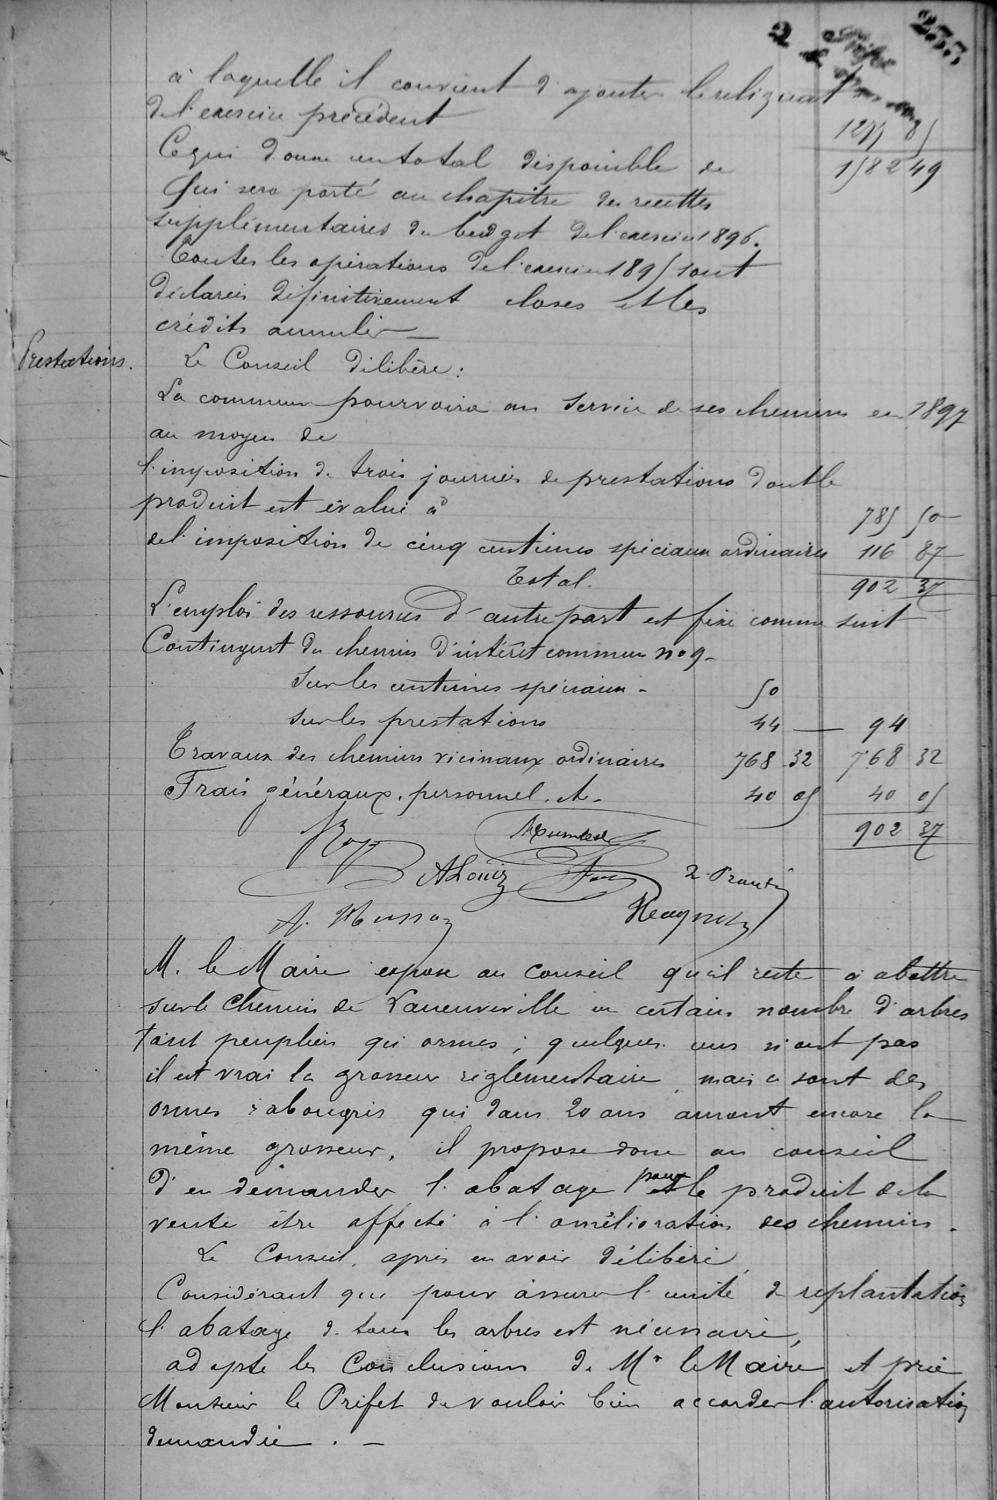 233
à laquelle il convient d'ajouter le reliquat
de l'exercice précédent 1277 85
Ce qui donne un total disponible de 1582 49
Qui sera porté au chapitre des recettes
supplémentaires du budget de l'exercice 1896.
Toutes les opérations de l'exercice 1895 sont
déclarées définitivement closes et les
crédits annulés —
Prestations. Le Conseil délibère :
La commune pourvoira au service de ses chemins en 1897
au moyen de
l'imposition de trois journées de prestations dont le
produit est évalué à 785 50
de l'imposition de cinq centimes spéciaux ordinaires 116 87
Total. 902 37
L'emploi des ressources d'autre part est fixé comme suit
Contingent du chemin d'intérêt commun no 9 -
Sur les centimes spéciaux - 50
Sur les prestations 44 — 94
Travaux des chemins vicinaux ordinaires 768 32 768 32
Frais généraux, personnel. et. 40 05 40 05
902 37
Roy
ALouis
M. le Maire expose au conseil qu'il reste à abattre
sur le chemin de Laneuveville un certain nombre d'arbres
tant peupliers qu'ormes ; quelques uns n'ont pas
il est vrai la grosseur réglementaire, mais ce sont des
ormes rabougris qui dans 20 ans auront encore la
même grosseur, il propose donc au conseil
d'en demander l'abatage pour le produit de la
vente être affecté à l'amélioration des chemins.
Le Conseil, après en avoir délibéré,
Considérant que pour assurer l'unité de replantation
l'abatage de tous les arbres est nécessaire,
adopte les Conclusions de Mr le Maire et prie
Monsieur le Préfet de vouloir bien accorder l'autorisation
demandée . —